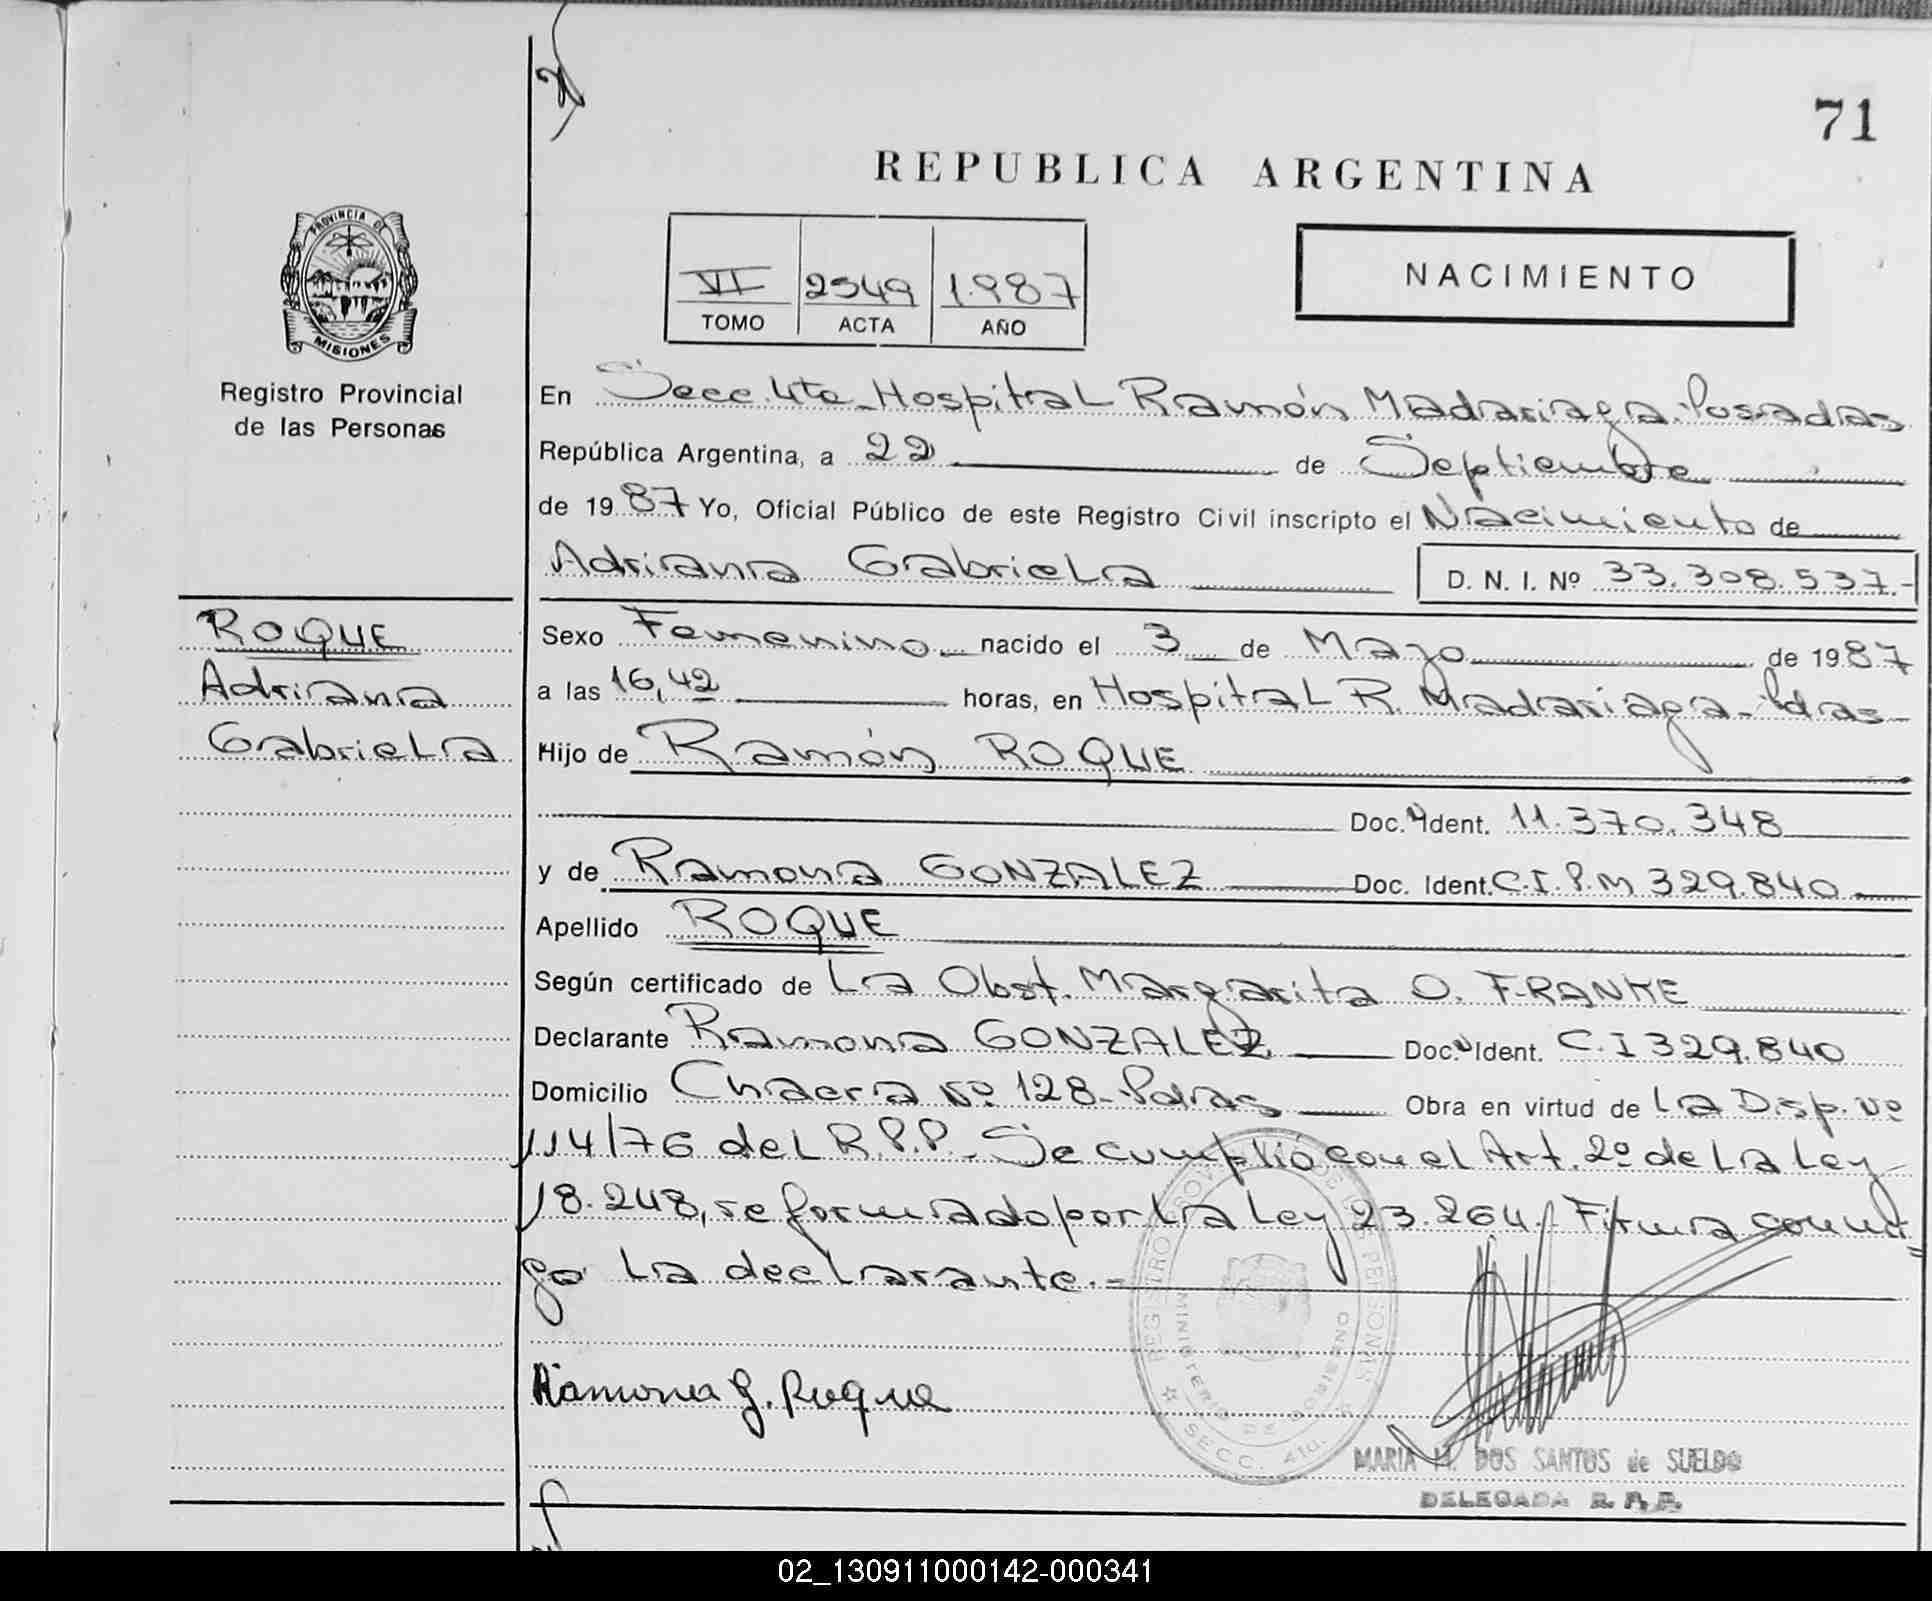 71
REPUBLICA ARGENTINA
PROVINCIA DE
MISIONES
Registro Provincial
de las Personas
VI 2549 1.987
TOMO ACTA AÑO
NACIMIENTO
En Secc. 4ta - Hospital Ramón Madariaga - Posadas
República Argentina, a 22 de Septiembre
de 1987 Yo, Oficial Público de este Registro Civil inscripto el Nacimiento de
Adriana Gabriela D. N. I. Nº 33.308.537.-
ROQUE
Adriana
Gabriela
Sexo Femenino nacido el 3 de Mayo de 1987
a las 16,42 horas, en Hospital R. Madariaga - Pdas -
Hijo de Ramón ROQUE
Doc. Ident. 11.370.348
y de Ramona GONZALEZ Doc. Ident. C.I.P.M 329.840
Apellido ROQUE
Según certificado de La Obst. Margarita O. FRANKE
Declarante Ramona GONZALEZ Doc. Ident. C.I 329.840
Domicilio Chacra Nº 128 - Pdas Obra en virtud de La Disp. Nº
114/76 del R.P.P. - Se cumplió con el Art. 2º de La Ley
18.248, reformado por La Ley 23.264. Firma conmi=
go La declarante. -
REGISTRO PROVINCIAL DE LAS PERSONAS
MINISTERIO DE GOBIERNO
SECC. 4ta.
Ramona G. Roque
MARIA M. DOS SANTOS de SUELDO
DELEGADA R. P. P.
02_130911000142-000341